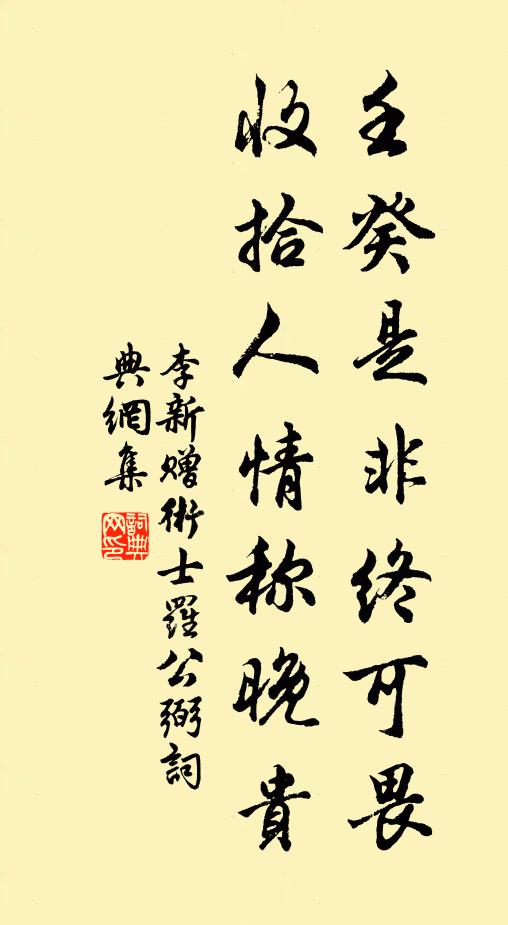 壬癸是非终可畏
收拾人情称晚貴
李新贈術士羅公弼詞
典網集
詞典
网印